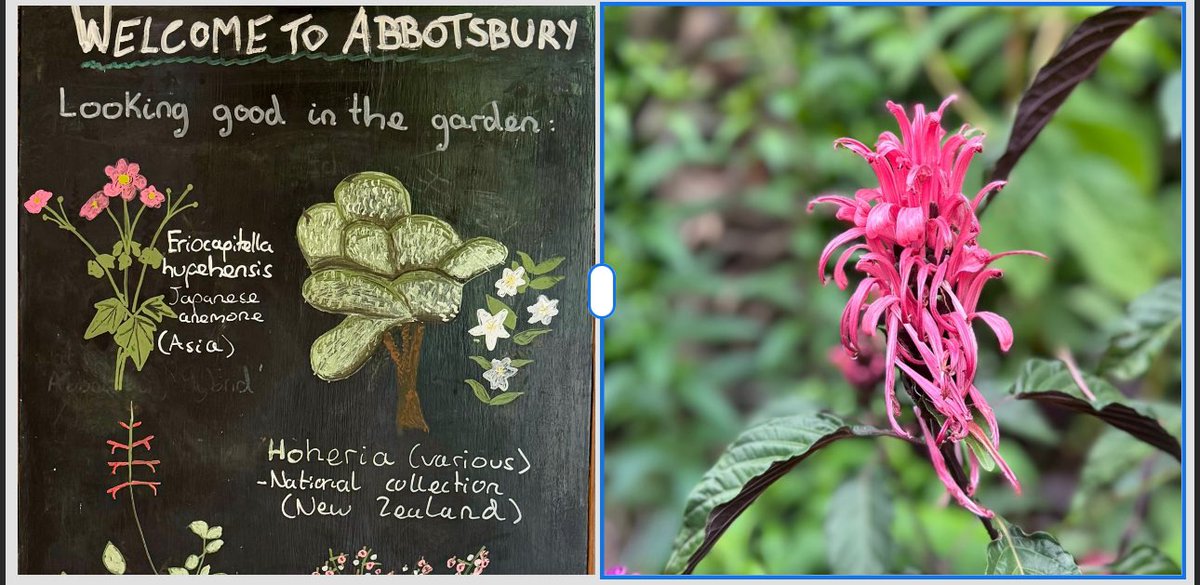 WELCOME TO ABBOTSBURY
Looking good in the garden:
Eriocapitella
hupehensis
Japanese
anemone
(Asia)
Hoheria (various)
-National collection
(New Zealand)